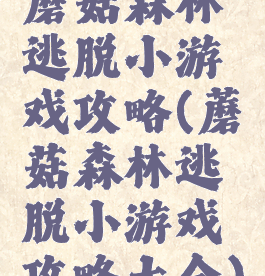 蘑菇森林
逃脱小游
戏攻略(蘑
菇森林逃
脱小游戏
攻略大全)